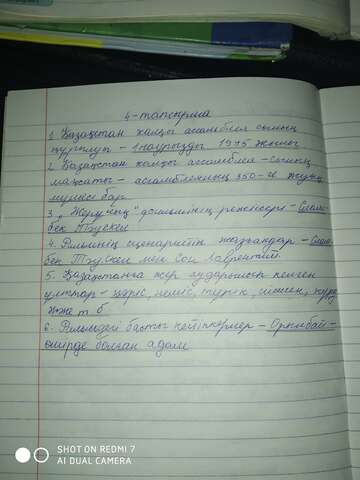 4-тапсырма
1. Қазақстан халқы ассамблея сының
құрылуы - 1 наурызды 1995 жылы
2. Қазақстан халқы ассамблея - сының
мақсаты - ассамблеяның 350-ге жуық
мүшесі бар
3. "Жерұйық" фильмінің режиссері - Слам-
бек Тәуекел
4. Фильмнің сценарийін жазғандар - Слам-
бек Тәуекел мен Сон Лаврентий.
5. Қазақстанға жер аударылып келген
ұлттар - кәріс, неміс, түрік, шешен, күрд
және т б
6. Фильмдегі басты кейіпкерлер - Орынбай -
өмірде болған адам
SHOT ON REDMI 7
AI DUAL CAMERA